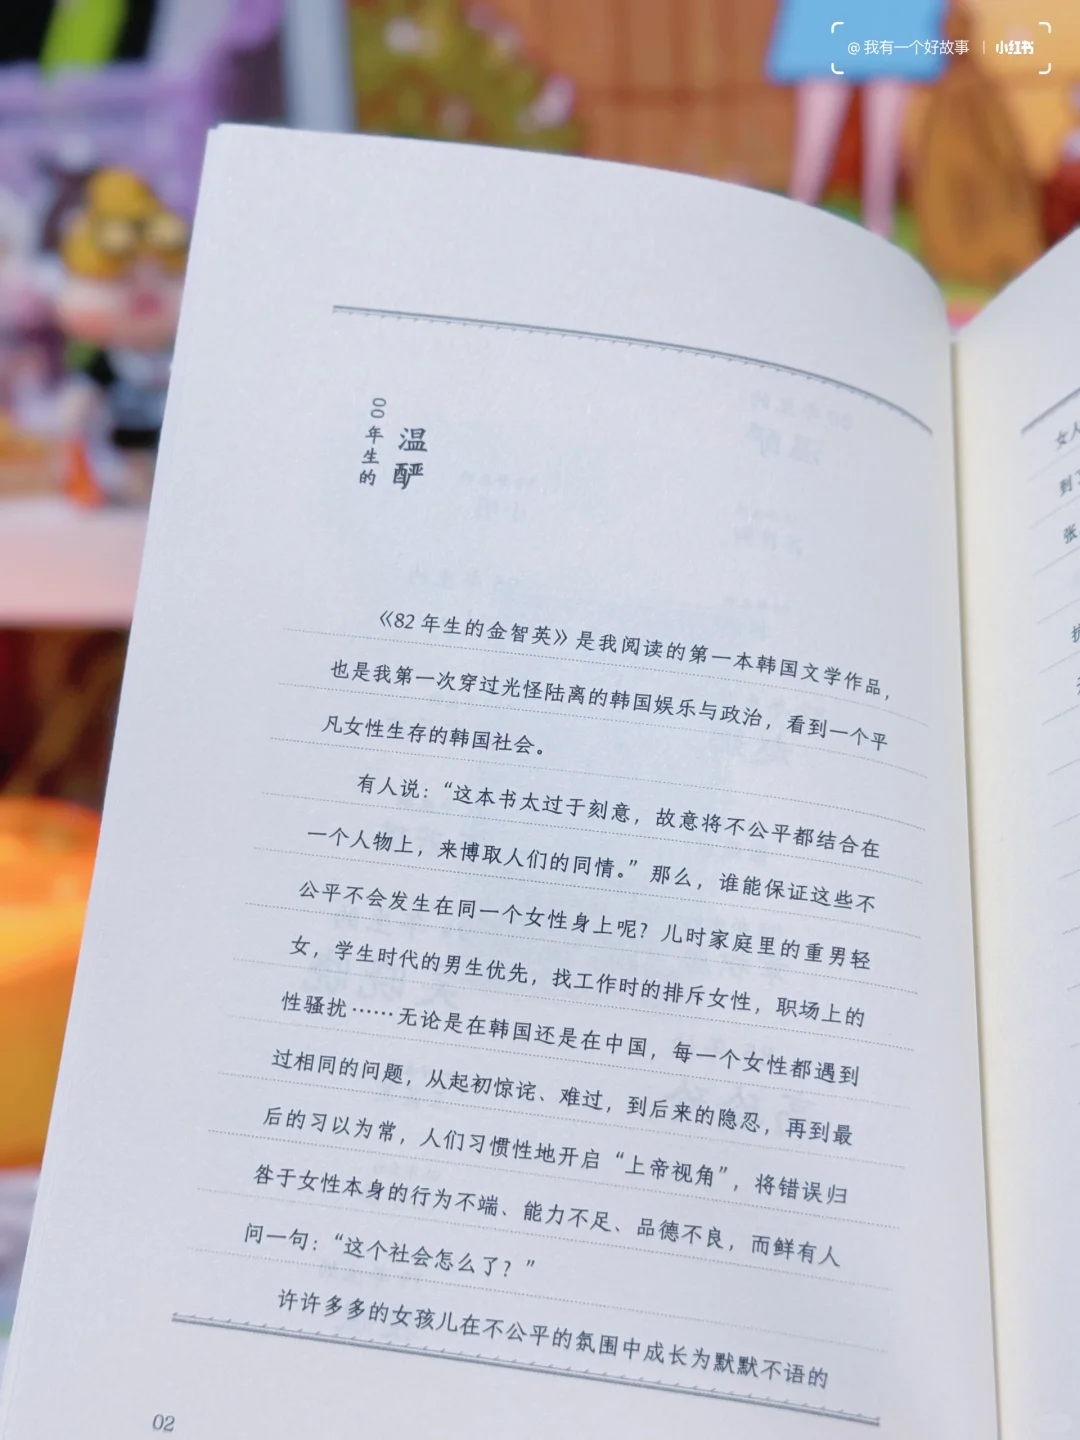 @我有一个好故事 | 小红书
00年生的
温酽
《82年生的金智英》是我阅读的第一本韩国文学作品，
也是我第一次穿过光怪陆离的韩国娱乐与政治，看到一个平
凡女性生存的韩国社会。
有人说：“这本书太过于刻意，故意将不公平都结合在
一个人物上，来博取人们的同情。”那么，谁能保证这些不
公平不会发生在同一个女性身上呢？儿时家庭里的重男轻
女，学生时代的男生优先，找工作时的排斥女性，职场上的
性骚扰……无论是在韩国还是在中国，每一个女性都遇到
过相同的问题，从起初惊诧、难过，到后来的隐忍，再到最
后的习以为常，人们习惯性地开启“上帝视角”，将错误归
咎于女性本身的行为不端、能力不足、品德不良，而鲜有人
问一句：“这个社会怎么了？”
许许多多的女孩儿在不公平的氛围中成长为默默不语的
02
女人
到了
张